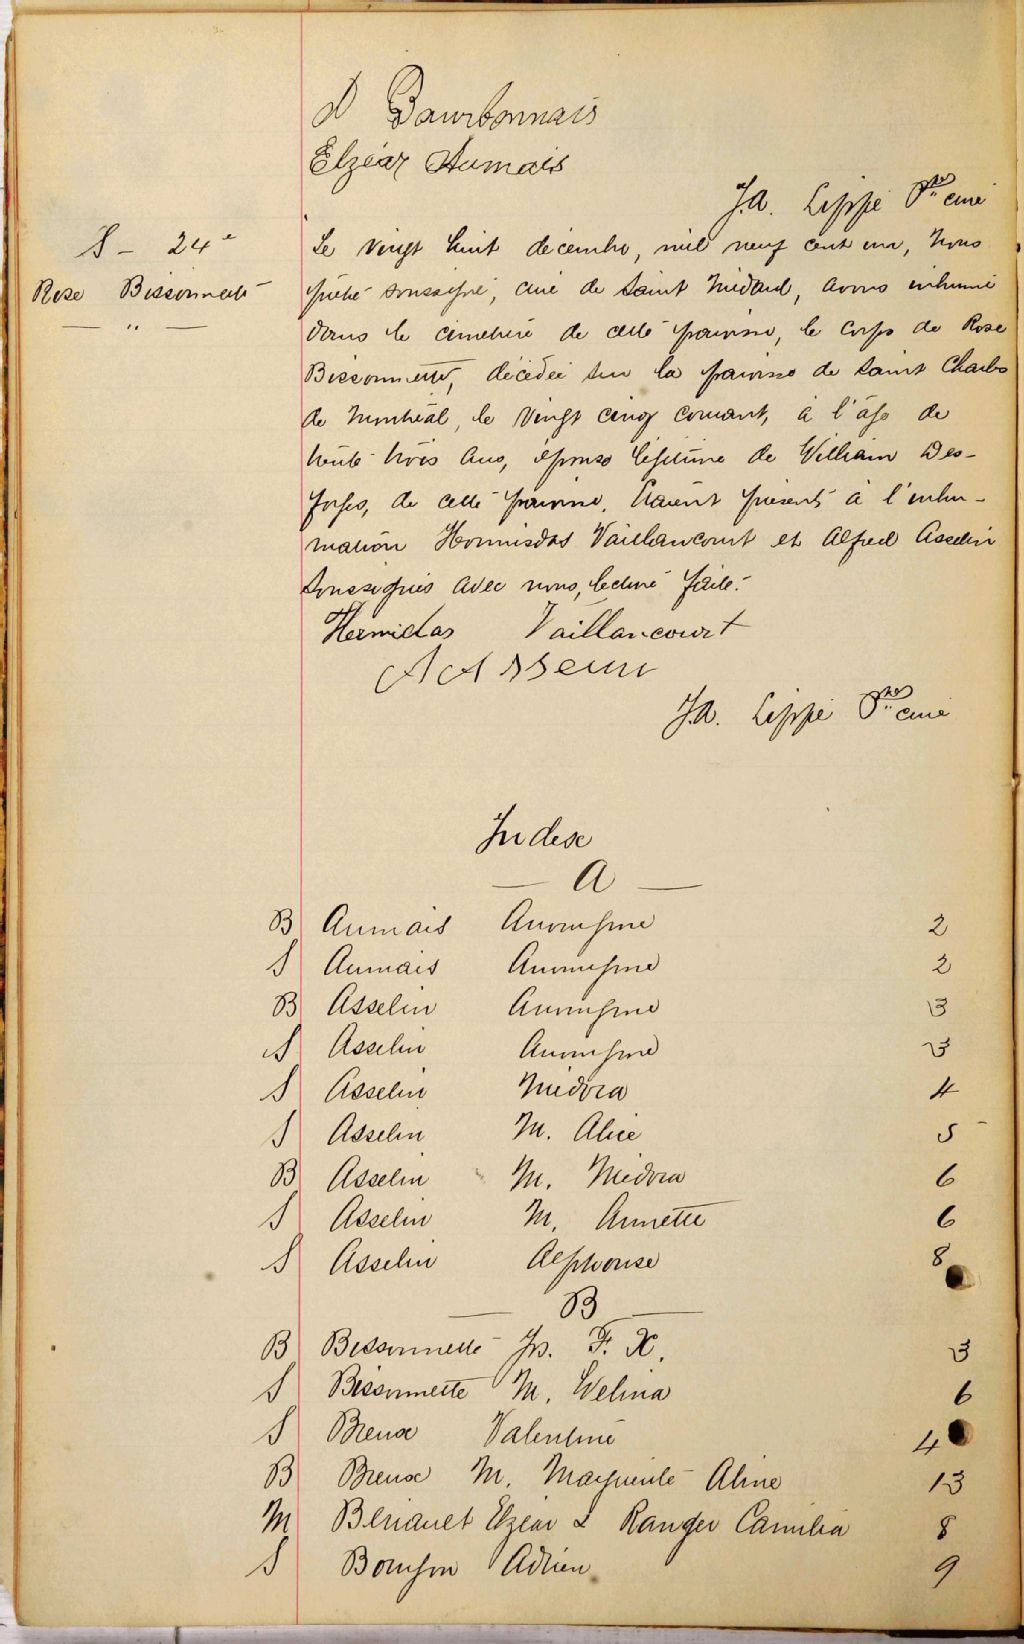 D Bourbonnais
Elzéar Aumais
J.A. Lippé Ptre curé
S - 24e
Rose Bissonnette
— " —
Le vingt huit décembre, mil neuf cent un, nous
prêtre soussigné, curé de Saint Médard, avons inhumé
dans le cimetière de cette paroisse, le corps de Rose
Bissonnette, décédée sur la paroisse de Saint Charles
de Montréal, le vingt cinq courant, à l'âge de
trente trois ans, épouse légitime de William Des-
forges, de cette paroisse. Étaient présents à l'inhu-
mation Hormisdas Vaillancourt et Alfred Asselin
soussignés avec nous, lecture faite.
Hermidas Vaillancourt
A Asselin
J.A. Lippé Ptre curé
Index
— A —
B Aumais Anonyme 2
S Aumais Anonyme 2
B Asselin Anonyme 3
S Asselin Anonyme 3
S Asselin Médora 4
S Asselin M. Alice 5
B Asselin M. Médora 6
S Asselin M. Annette 6
S Asselin Alphonse 8
— B —
B Bissonnette Js. F. X. 3
S Bissonnette M. Evelina 6
S Breux Valentine 4
B Breux M. Marguerite Aline 13
M Blériauet Elzéar & Ranger Camilia 8
S Bourgon Adrien 9